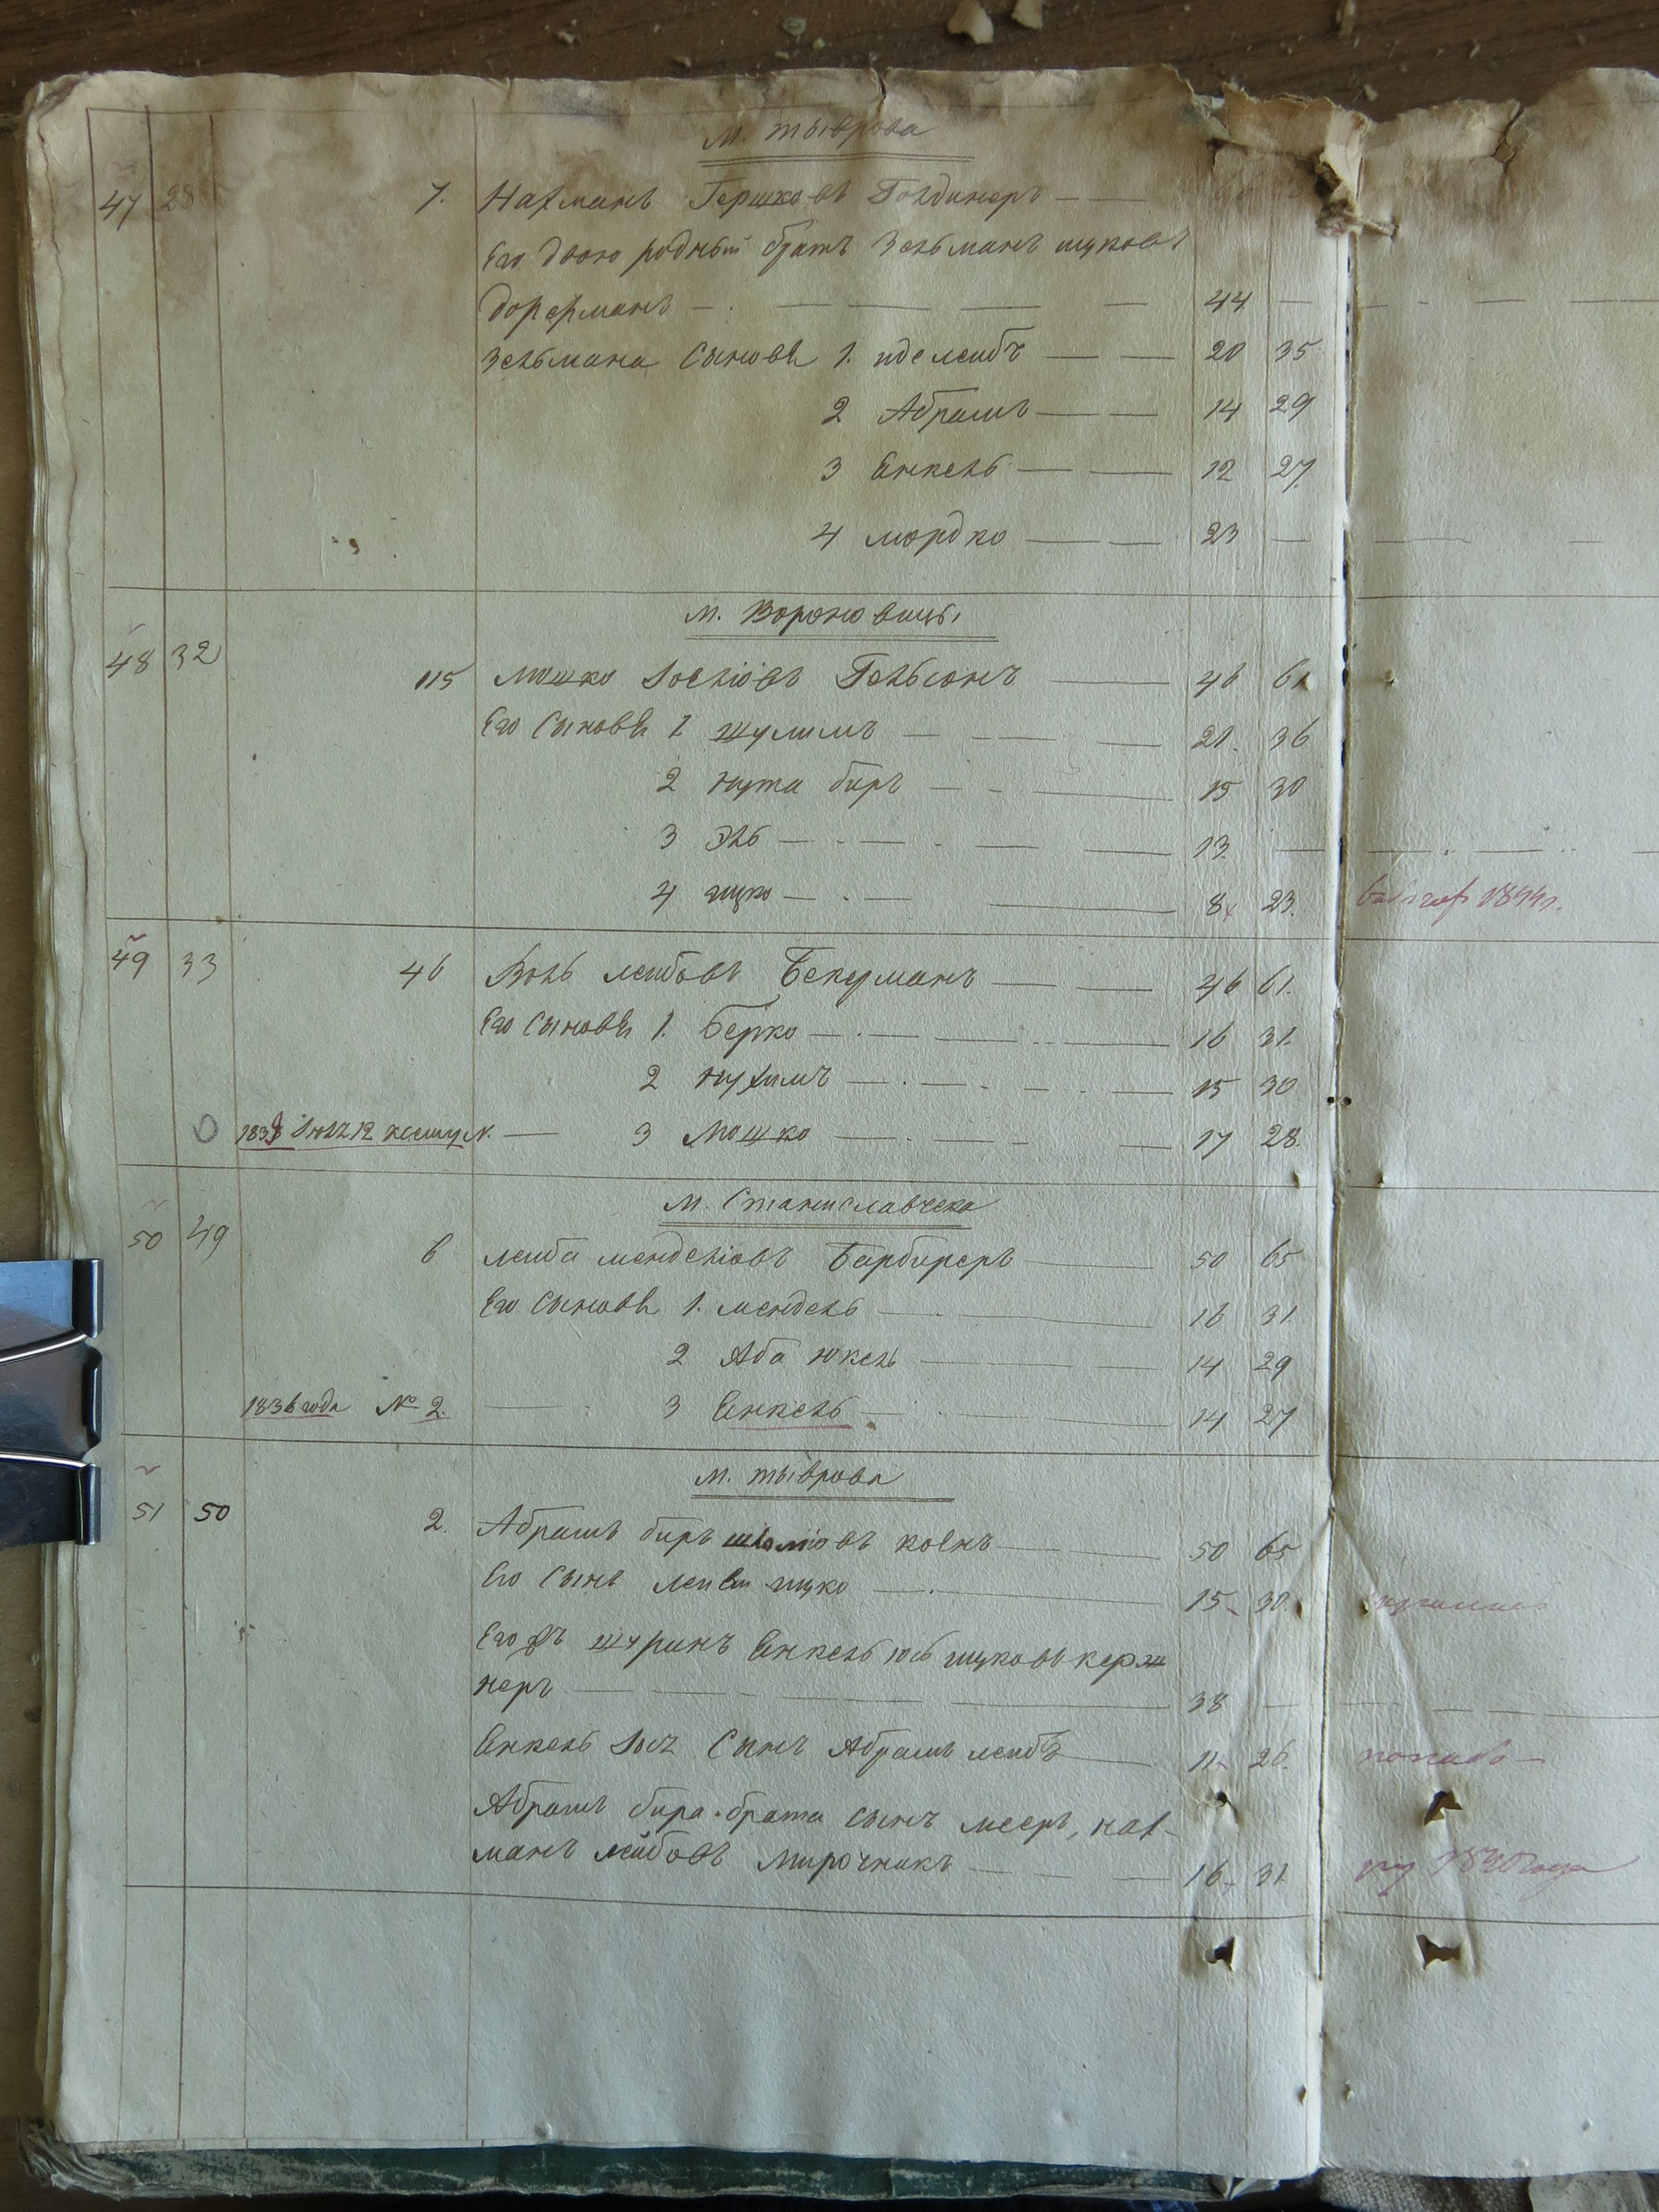 м. тыврова
47 23 7. Нахманъ Гершковъ Голдинеръ
Его двою родный братъ Зельманъ ицковъ
Дорфманъ 44
Зельмана Сыновя 1. иделейбъ 20 35
2 Абрамъ 14 29
3 Енкель 12 27
4 мордко 23
м. Вороновицы
48 32 115 Мошко Іосліовъ Гельсонъ 46 61
Его Сыновя 1 шулимъ 21 36
2 нута биръ 15 30
3 Эль 13
4 ицко 8 23
49 33 46 Волъ лейбовъ Бекерманъ 46 61
Его Сыновя 1. Берко 16 31
2 нухимъ 15 30
3 Мошко 17 28
м. Станиславчека
50 49 6 лейба менделіовъ Барбиреръ 50 65
Его Сыновя 1. мендель 16 31
2 Аба юкель 14 29
1836 года № 2. 3 Енкель 14 27
м. тыврова
51 50 2. Абрамъ биръ шломіовъ коенъ 50 65
Его Сынъ леиви ицко 15 30
Его шуринъ Енкель юсь ицковъ керш
неръ 38
Енкель Іосъ Сынъ Абрамъ лейбъ 11 26
Абрамъ бира брата сынъ мееръ, нах-
манъ лейбовъ мирочникъ 16 31